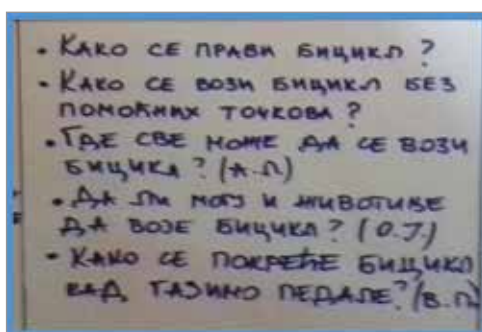 • КАКО СЕ ПРАВИ БИЦИКЛ ?
• КАКО СЕ ВОЗИ БИЦИКЛ БЕЗ
ПОМОЋНИХ ТОЧКОВА ?
• ГДЕ СВЕ МОЖЕ ДА СЕ ВОЗИ
БИЦИКЛ ? (А.Л)
• ДА ЛИ МОГУ И ЖИВОТИЊЕ
ДА ВОЗЕ БИЦИКЛ ? (О.Ј)
• КАКО СЕ ПОКРЕЋЕ БИЦИКЛ
КАД ГАЗИМО ПЕДАЛЕ? (В.П)